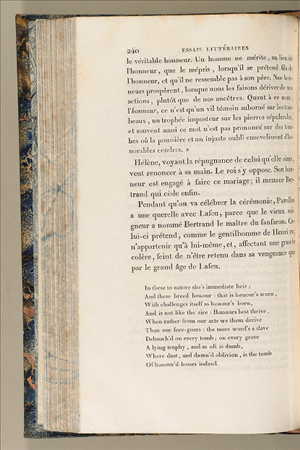 240 ESSAIS LITTÉRAIRES
le véritable honneur. Un homme ne mérite, au lieu de
l'honneur, que le mépris, lorsqu'il se prétend fils de
l'honneur, et qu'il ne ressemble pas à son père. Nos hon-
neurs prospèrent, lorsque nous les faisons dériver de nos
actions, plutôt que de nos ancêtres. Quant à ce mot,
l'honneur, ce n'est qu'un vil témoin suborné sur les tom-
beaux, un trophée imposteur sur les pierres sépulcrales,
et souvent aussi ce mot n'est pas prononcé sur des tom-
bes où la poussière et un injuste oubli ensevelissent d'ho-
norables cendres. »
Hélène, voyant la répugnance de celui qu'elle aime,
veut renoncer à sa main. Le roi s'y oppose. Son hon-
neur est engagé à faire ce mariage; il menace Ber-
trand qui cède enfin.
Pendant qu'on va célébrer la cérémonie, Parolles
a une querelle avec Lafeu, parce que le vieux sei-
gneur a nommé Bertrand le maître du fanfaron. Ce-
lui-ci prétend, comme le gentilhomme de Henri IV,
n'appartenir qu'à lui-même, et, affectant une grande
colère, feint de n'être retenu dans sa vengeance que
par le grand âge de Lafeu.
In these to nature she's immediate heir;
And these breed honour: that is honour's scorn,
With challenges itself as honour's born,
And is not like the sire: Honours best thrive,
When rather from our acts we them derive
Than our fore-goers: the mere word's a slave
Debauch'd on every tomb; on every grave
A lying trophy, and as oft is dumb,
Where dust, and damn'd oblivion, is the tomb
Of honour'd bones indeed.